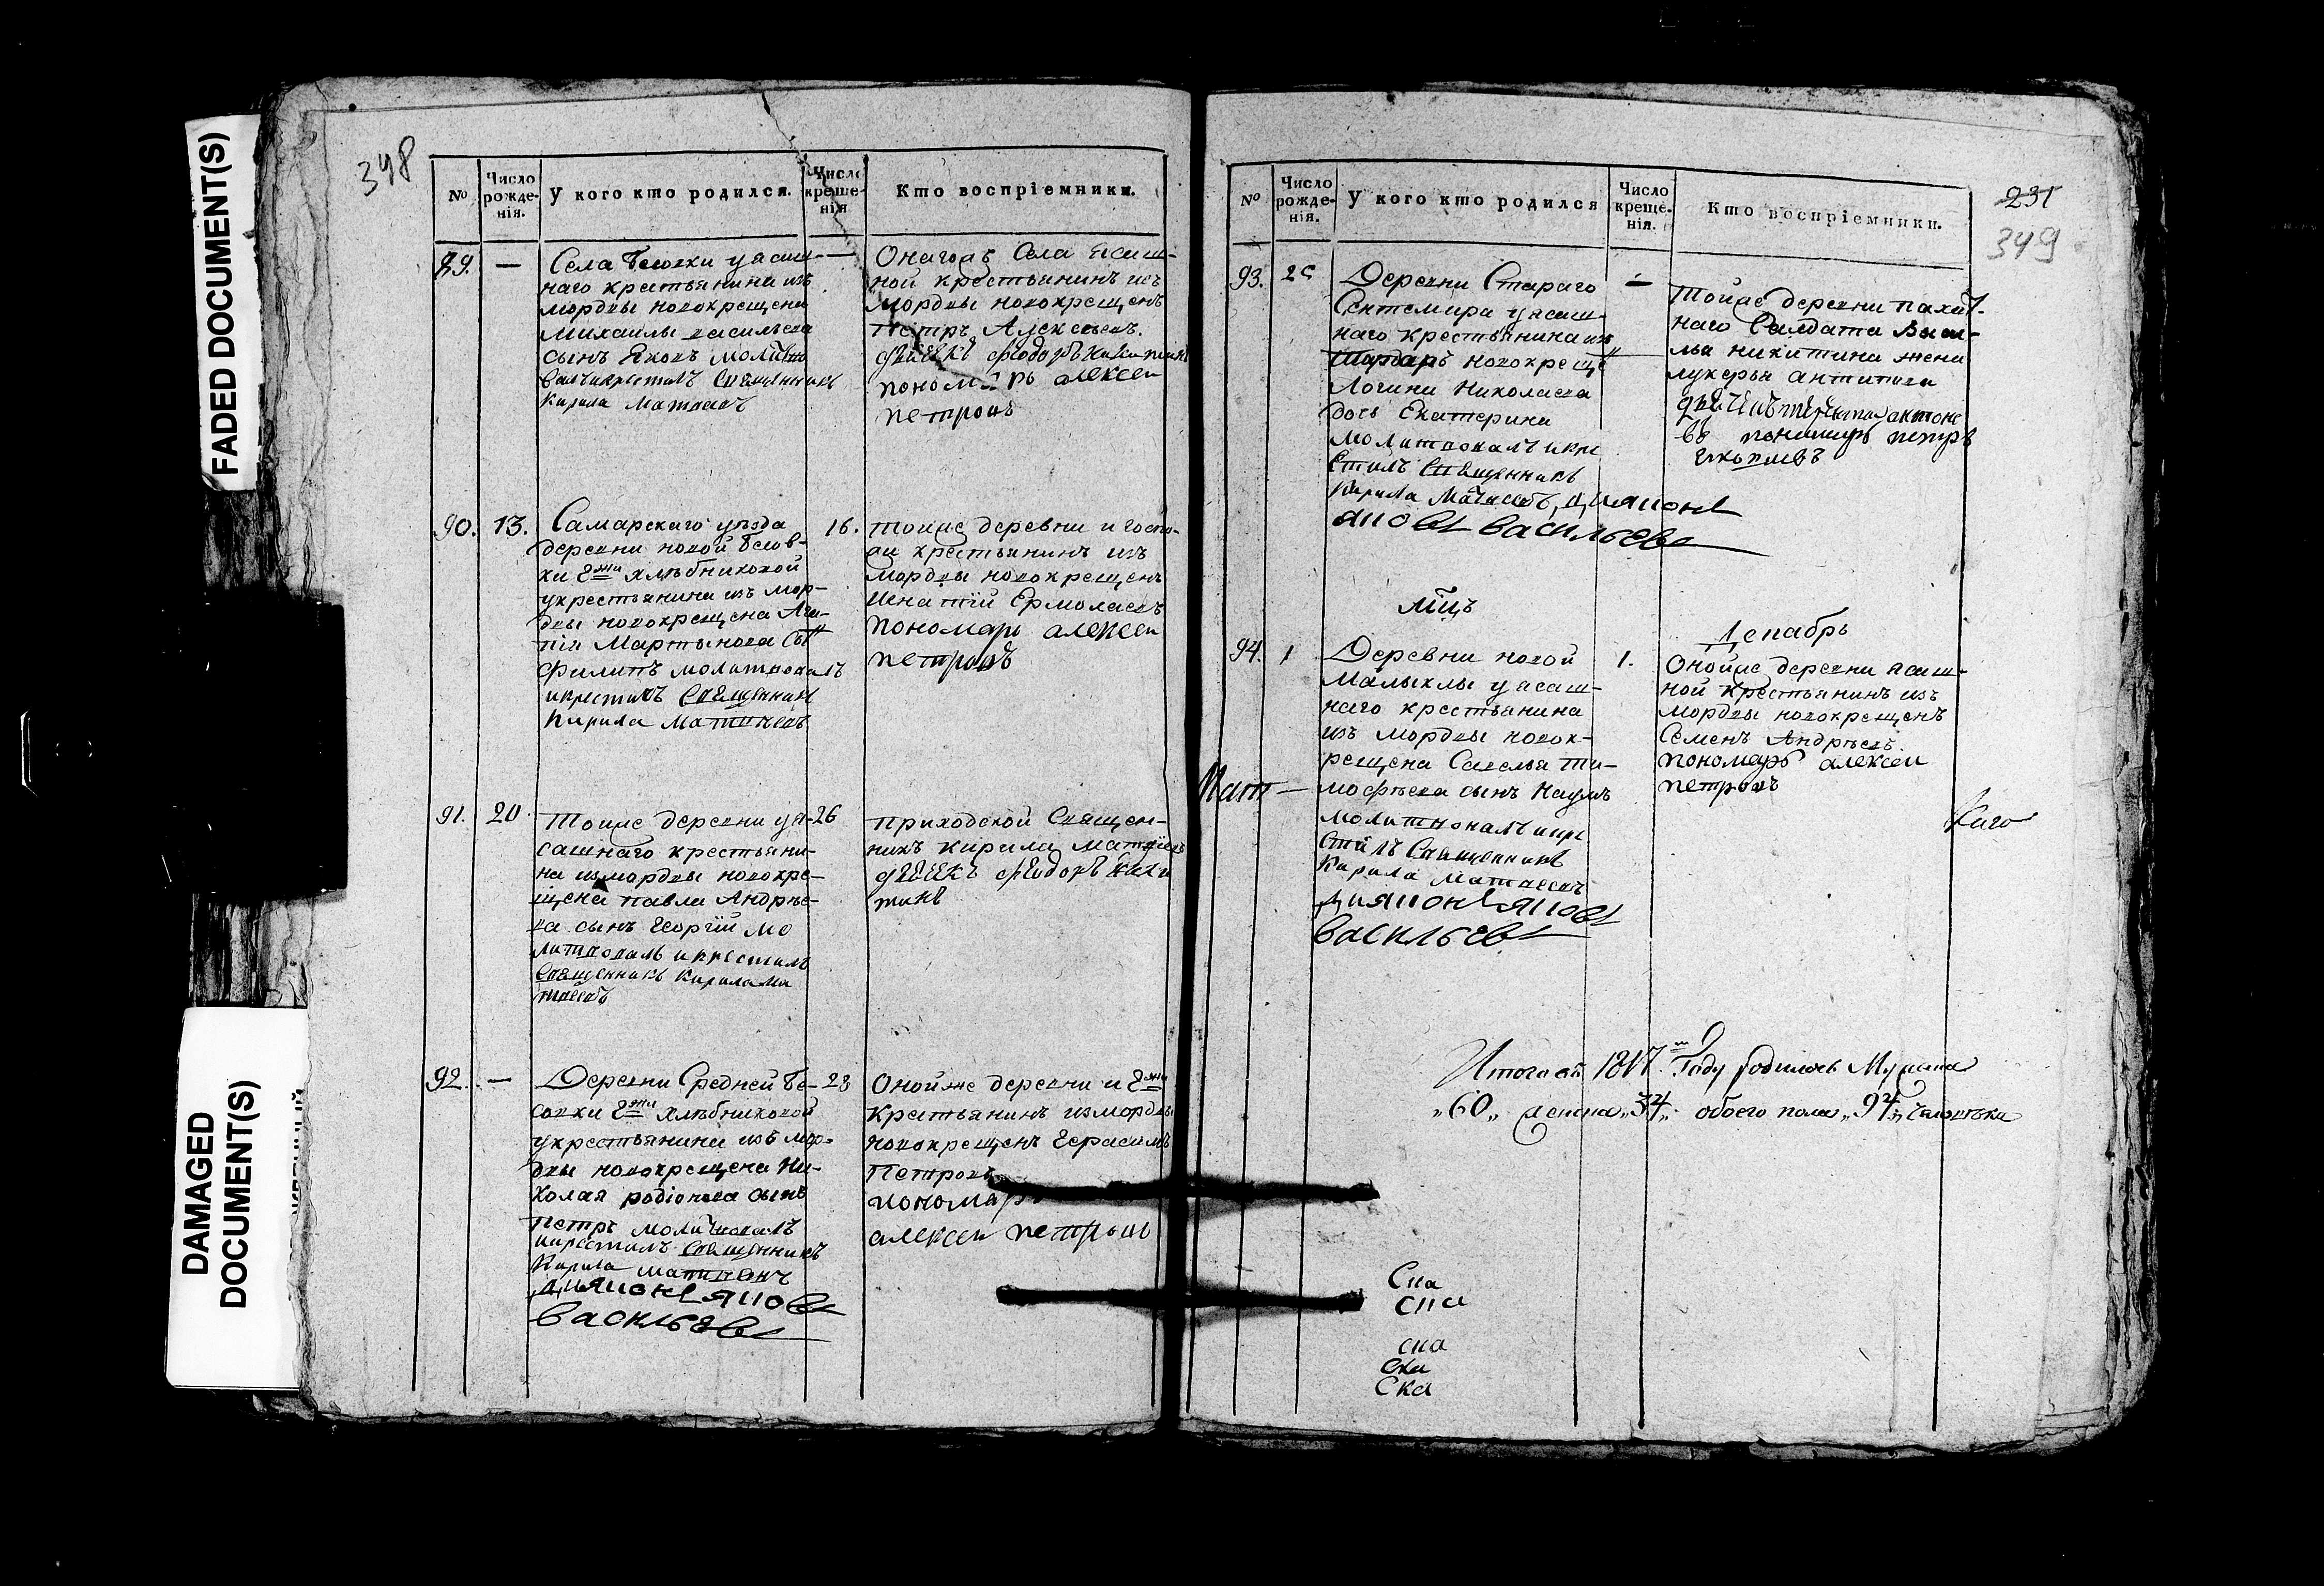 FADED DOCUMENT(S)
DAMAGED
DOCUMENT(S)
348
№
Число рожде-нія.
У кого кто родился.
Число креще-нія
Кто воспріемники.
89. —
Села Бесовки уясаш-
наго крестьянина изъ
мордвы новокрещена
Михаилы васильева
сынъ Яковъ
Священникъ
Кирила Матвеевъ
—
Села ясаш-
ной крестьянинъ изъ
мордвы новокрещенъ
Петръ Алексеевъ.
федоръ никитинъ
пономарь алексеи
петровъ
90. 13.
Самарскаго уѣзда
деревни новой Бесов-
ки Гжи хлѣбниковой
укрестьянина изъ мор-
двы новокрещена
Мартынова
Филипъ молитвовалъ
икрестилъ Священникъ
Кирила Матвеевъ
16.
тоейже деревни и госпо-
жи крестьянинъ изъ
мордвы новокрещенъ
Игнатій Ермолаевъ
пономарь алексеи
петровъ
91. 20
Тоейже деревни уя-
сашнаго крестьяни-
на измордвы новокре-
щена павла Андрѣе-
ва сынъ Георгій мо
литвовалъ икрестилъ
Священникъ Кирила Ма
твеевъ
26
приходской Священ-
никъ кирила Матвеевъ
федоръ ники
тинъ
92. —
Деревни Средней Бе-
совки Гжи хлѣбниковой
укрестьянина изъ мор-
двы новокрещена Ни-
колая родіонова сынъ
петръ молитвовалъ
икрестилъ Священникъ
Кирила Матвеевъ
диякон яков
васильев
28
Онойже деревни и Гжи
крестьянинъ измордвы
новокрещенъ Герасимъ
Петровъ
пономарь
алексеи петровъ
231
349
№
Число рожде-нія.
У кого кто родился
Число креще-нія.
Кто воспріемники.
93. 25
Деревни Стараго
Сентемира уясаш-
наго крестьянина изъ
новокреще
Логина Николаева
дочь Екатерина
молитвовалъ икре
стилъ Священникъ
Кирила Матвеевъ, диякон
яков васильев
—
Тойже деревни
наго Салдата Васи-
лья никитина жена
лукерья антипова
пономарь петръ
мцъ
Декабрь
94. 1
Деревни новой
Малыклы уясаш-
наго крестьянина
изъ мордвы новок-
рещена Савелья ти-
мофѣева сынъ Наумъ
молитвовалъ икре
стилъ Священникъ
Кирила Матвеевъ
диякон яков
васильев
1.
Онойже деревни ясаш-
ной крестьянинъ изъ
мордвы новокрещенъ
Семенъ Андрѣевъ.
пономарь алексеи
петровъ
Мат —
Итого въ 1817. Году родилось Мужска
„60„ женска „34„ обоего пола „94„ человѣка